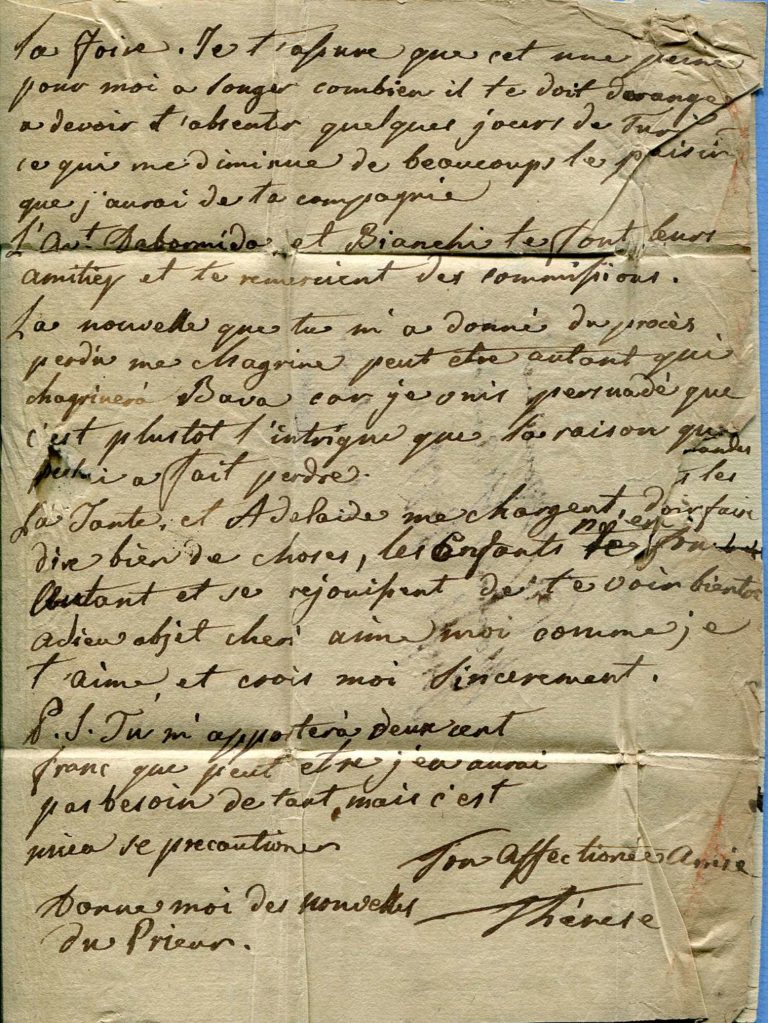 la foire. Je t'assure que cet une peine
pour moi a songer combien il te doit deranger
a devoir t'absenter quelques jours de Turin
ce qui me diminue de beaucoups le plaisir
que j'aurai de ta compagnie
L'Avt. Dabormida et Bianchi te font leurs
amitiés et te remercient des commissions.
La nouvelle que tu m'a donné du procès
perdu me chagrine peut etre autant qui
chagrinerà Bava car je suis persuadé que
c'est plustot l'intrigue que la raison qui
lui a fait perdre.
La Tante, et Adelaide me chargent, de te faire
toutes les
dire bien de choses, les Enfants n'en font
autant et se rejouissent de te voir bientot
adieu objet cheri aime moi comme je
t'aime et crois moi sincerement.
P.S. Tu m'apporterà deux cent
franc que peut etre j'en aurai
pas besoin de tant, mais c'est
mieu se precautioner
Ton Affectionée Amie
Thérese
Donne moi des nouvelles
du Prieur.